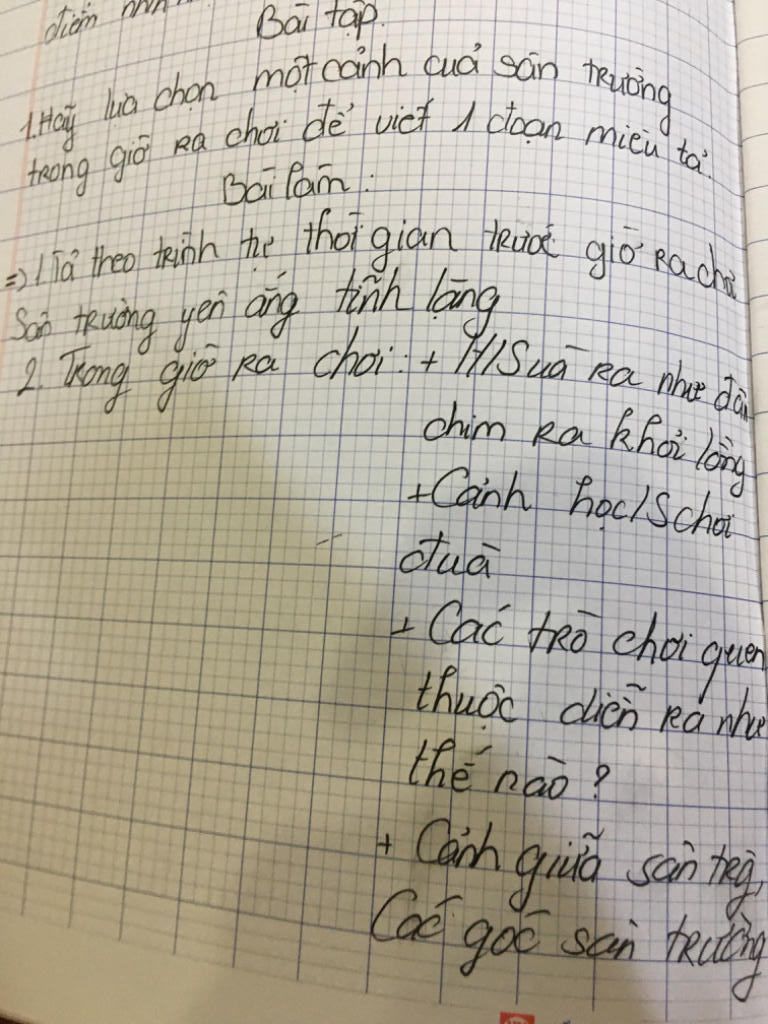 điểm nhìn
Bài tập.
1. Hãy lựa chọn một cảnh của sân trường
trong giờ ra chơi để viết 1 đoạn miêu tả.
Bài làm:
=> 1 Tả theo trình tự thời gian trước giờ ra chơi
Sân trường yên ắng tĩnh lặng
2. Trong giờ ra chơi: + H/S ùa ra như đàn
chim ra khỏi lồng
+ Cảnh học/S chơi
đùa
+ Các trò chơi quen
thuộc diễn ra như
thế nào?
+ Cảnh giữa sân trg,
Các góc sân trường